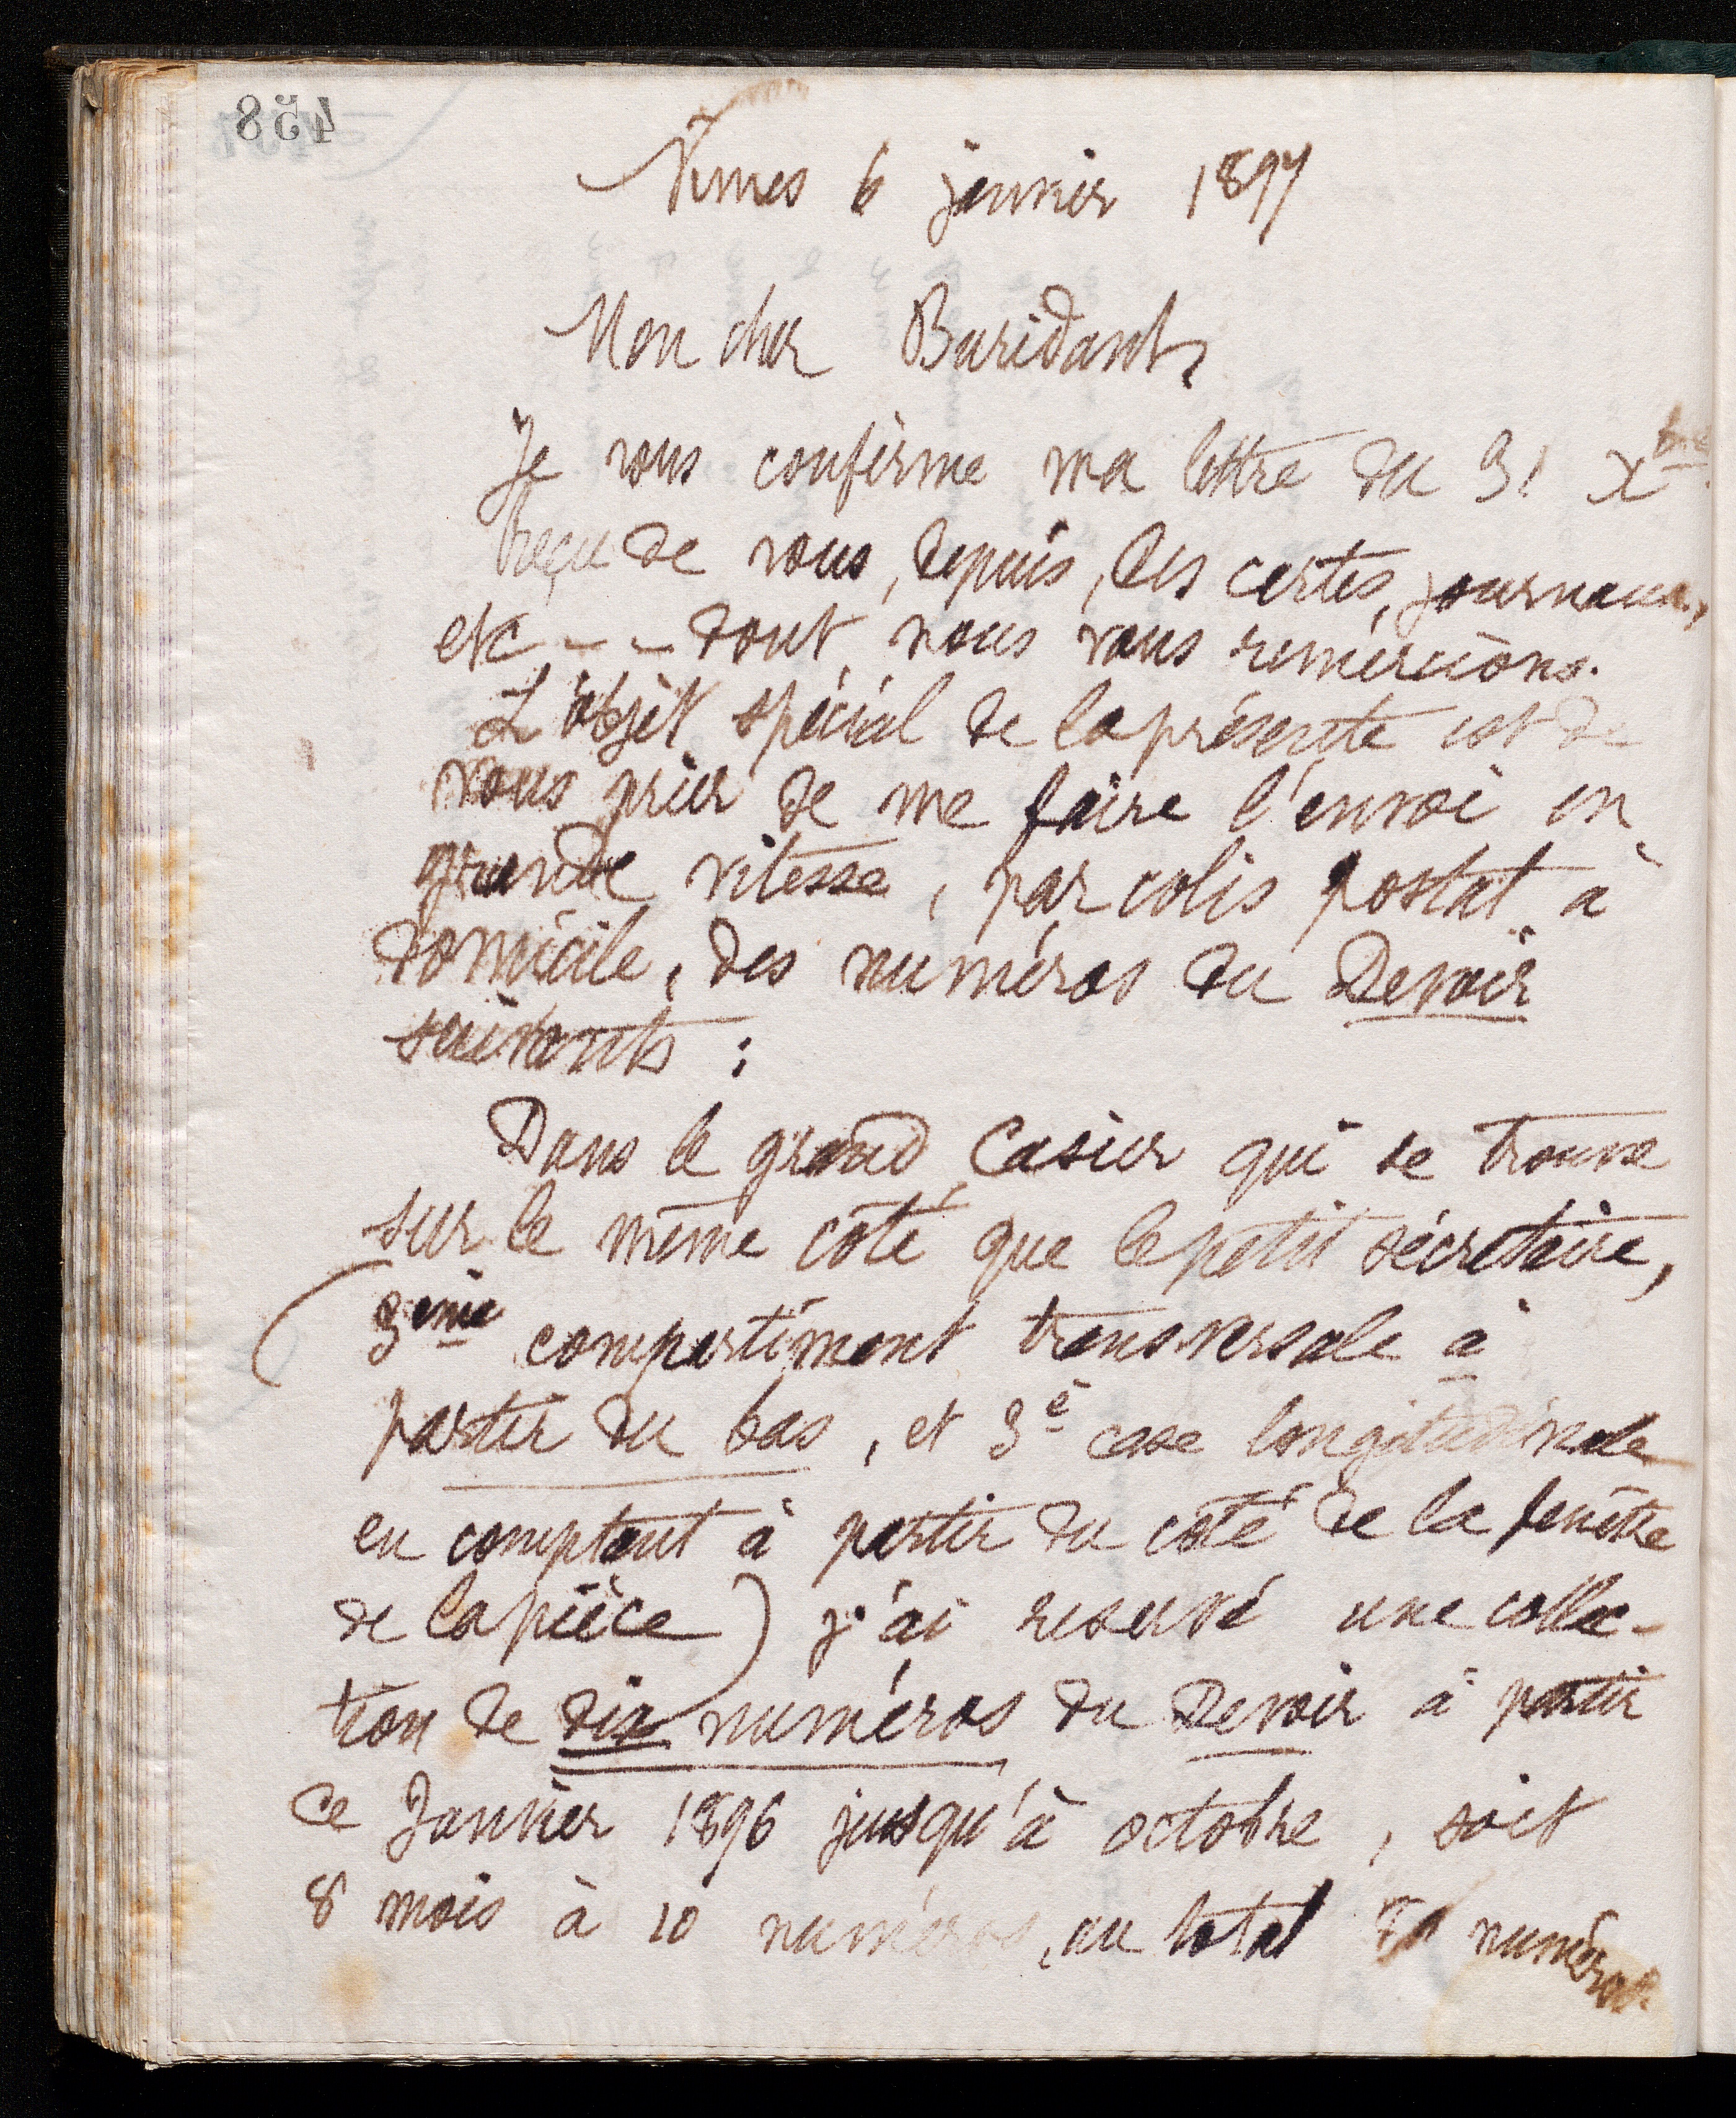 458
Nîmes 6 janvier 1897
Mon cher Buridant,
Je vous confirme ma lettre du 31 Xbre.
Reçu de vous, depuis, les cartes, journaux,
etc - - dont nous vous remercions.
L'objet spécial de la présente est de
vous prier de me faire l'envoi en
grande vitesse, par colis postal à
domicile, des numéros du Devoir
suivants :
Dans le grand Casier qui se trouve
sur le même côté que le petit sécrétaire,
(3ème compartiment transversale à
partir du bas, et 3è case longitudinale
en comptant à partir du côté de la fenêtre
de la pièce) j'ai reservé une collec-
tion de dix numéros du Devoir à partir
de Janvier 1896 jusqu'à octobre, soit
8 mois à 10 numéros, au total numéros.